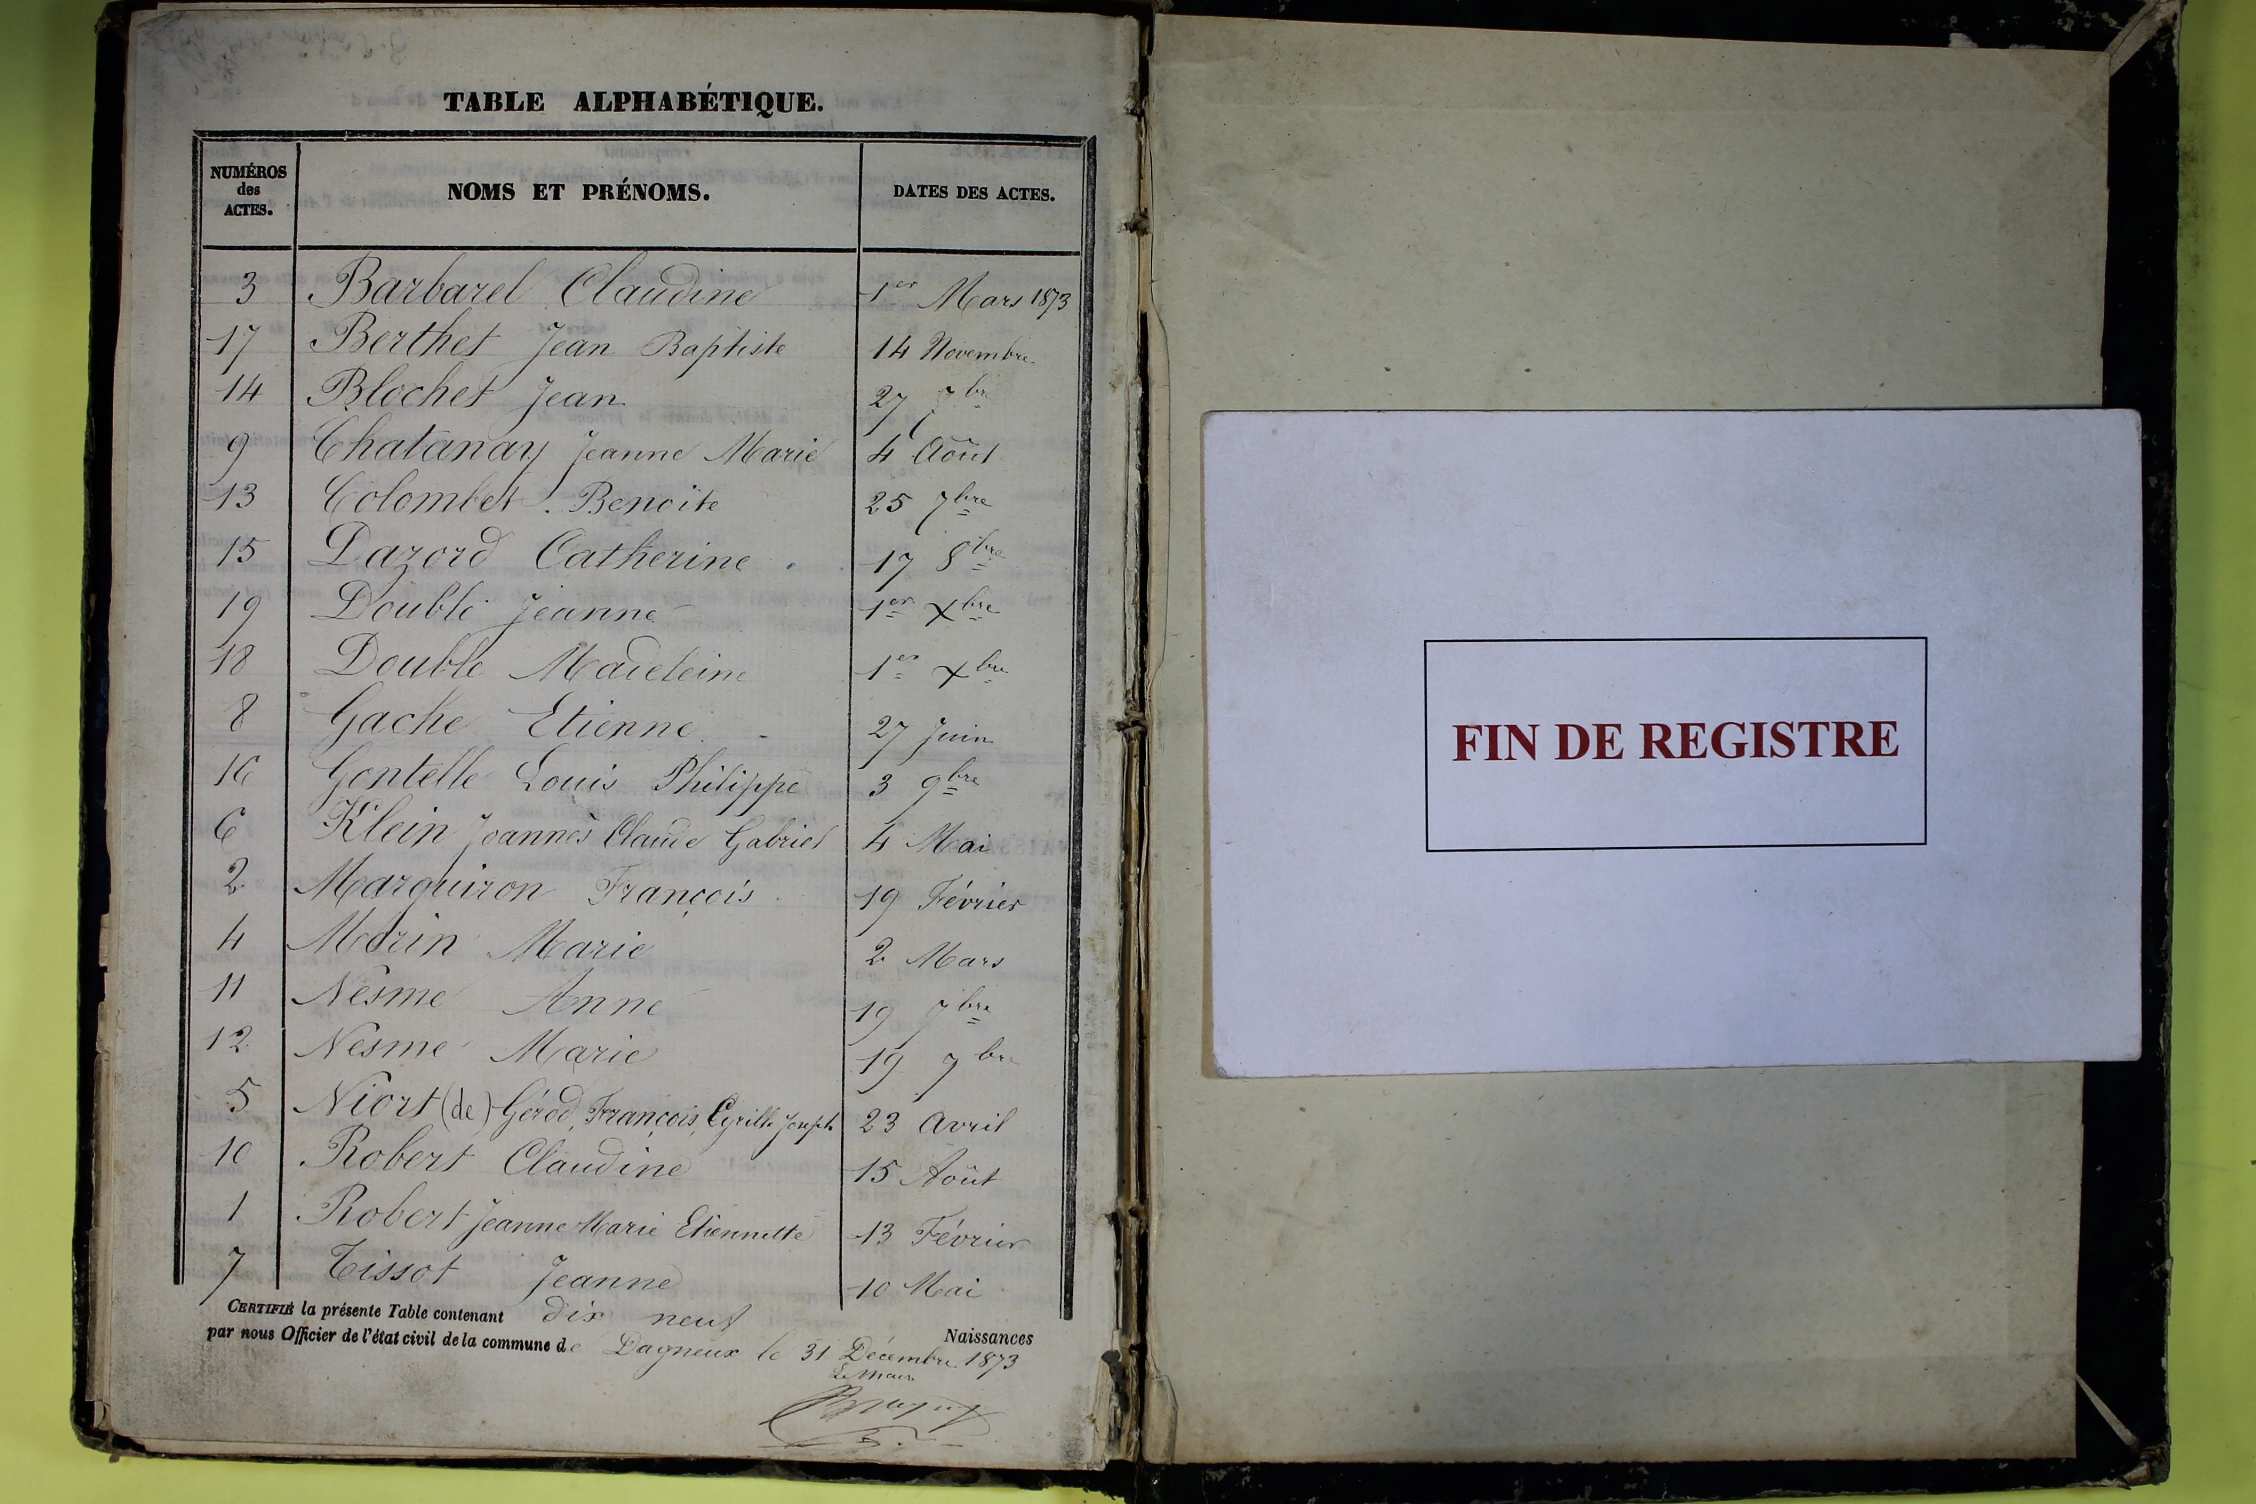 TABLE ALPHABÉTIQUE.
NUMÉROS des ACTES. NOMS ET PRÉNOMS. DATES DES ACTES.
3 Barbarel Claudine 1er Mars 1873
17 Berthet Jean Baptiste 14 Novembre
14 Blochet Jean 27 7bre
9 Chatanay Jeanne Marie 4 Août
13 Colombet Benoite 25 7bre
15 Dazord Catherine 17 8bre
19 Double Jeanne 1er Xbre
18 Double Madeleine 1er Xbre
8 Gache Etienne 27 Juin
16 Gontelle Louis Philippe 3 9bre
6 Klein Joannès Claude Gabriel 4 Mai
2 Marguiron François 19 Février
4 Morin Marie 2 Mars
11 Nesme Anne 19 7bre
12 Nesme Marie 19 7bre
5 Niort (de) Gérôd, François, Cyrille Joseph 23 Avril
10 Robert Claudine 15 Août
1 Robert Jeanne Marie Etiennette 13 Février
7 Tissot Jeanne 10 Mai
CERTIFIÉ la présente Table contenant dix neuf Naissances
par nous Officier de l'état civil de la commune de Dagneux le 31 Décembre 1873
Le Maire
FIN DE REGISTRE